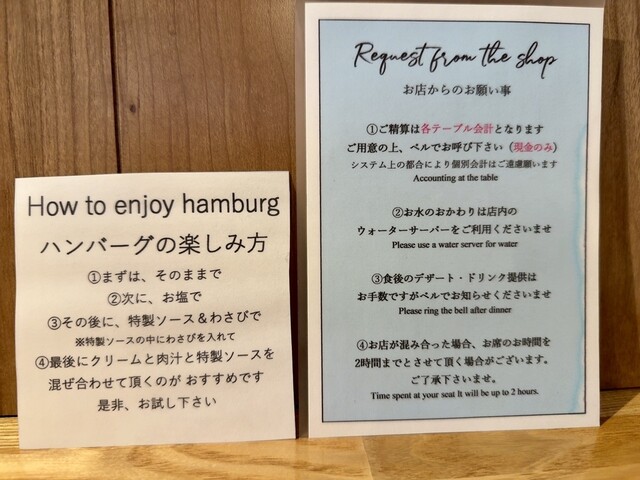 How to enjoy hamburg
ハンバーグの楽しみ方
①まずは、そのままで
②次に、お塩で
③その後に、特製ソース＆わさびで
※特製ソースの中にわさびを入れて
④最後にクリームと肉汁と特製ソースを
混ぜ合わせて頂くのが おすすめです
是非、お試し下さい
Request from the shop
お店からのお願い事
①ご精算は各テーブル会計となります
ご用意の上、ベルでお呼び下さい（現金のみ）
システム上の都合により個別会計はご遠慮願います
Accounting at the table
②お水のおかわりは店内の
ウォーターサーバーをご利用くださいませ
Please use a water server for water
③食後のデザート・ドリンク提供は
お手数ですがベルでお知らせくださいませ
Please ring the bell after dinner
④お店が混み合った場合、お席のお時間を
2時間までとさせて頂く場合がございます。
ご了承下さいませ。
Time spent at your seat It will be up to 2 hours.